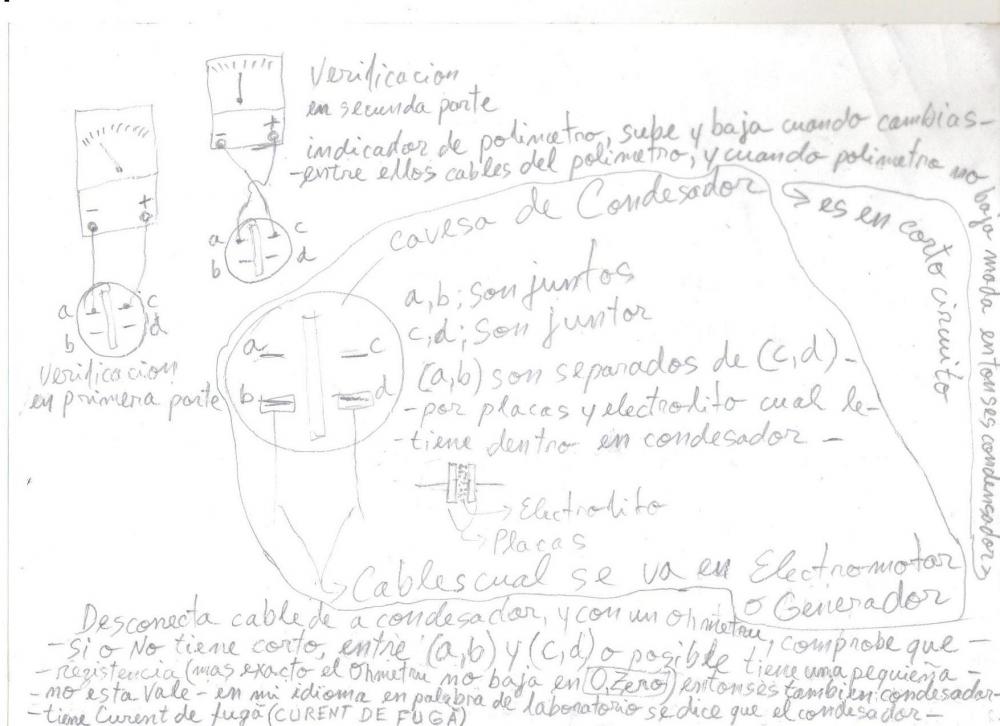 Verificacion
en secunda parte
indicador de polimetro, sube y baja cuando cambias-
-entre ellos cables del polimetro, y cuando polimetro no
baja nada entonses condensador>
> es en corto circuito
cavesa de Condesador
- +
- +
a c
b d
a c
b d
Verificacion
en primera parte
a c
b d
a,b; Son juntos
c,d; Son juntor
(a,b) son separados de (c,d)-
-por placas y electrolito cual le-
-tiene dentro en condesador-
Electrolito
Placas
Cables cual se va en Electromotor
o Generador
Desconecta cable de a condesador, y con un Ohmetru, comprobe que-
-si o No tiene corto, entre (a,b) y (c,d) o posible tiene uma pequieña-
-registencia (mas exacto el Ohmetru no baja en O,Zero) entonses tambien condesador-
-no esta Vale-en mi idioma en palabra de laboratorio se dice que el condesador-
-tiene Curent de fugă (CURENT DE FUGĂ)